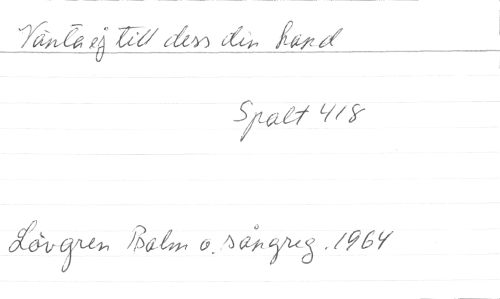 Vänta ej till dess din hand
Spalt 418
Lövgren Psalm o. sångreg. 1964